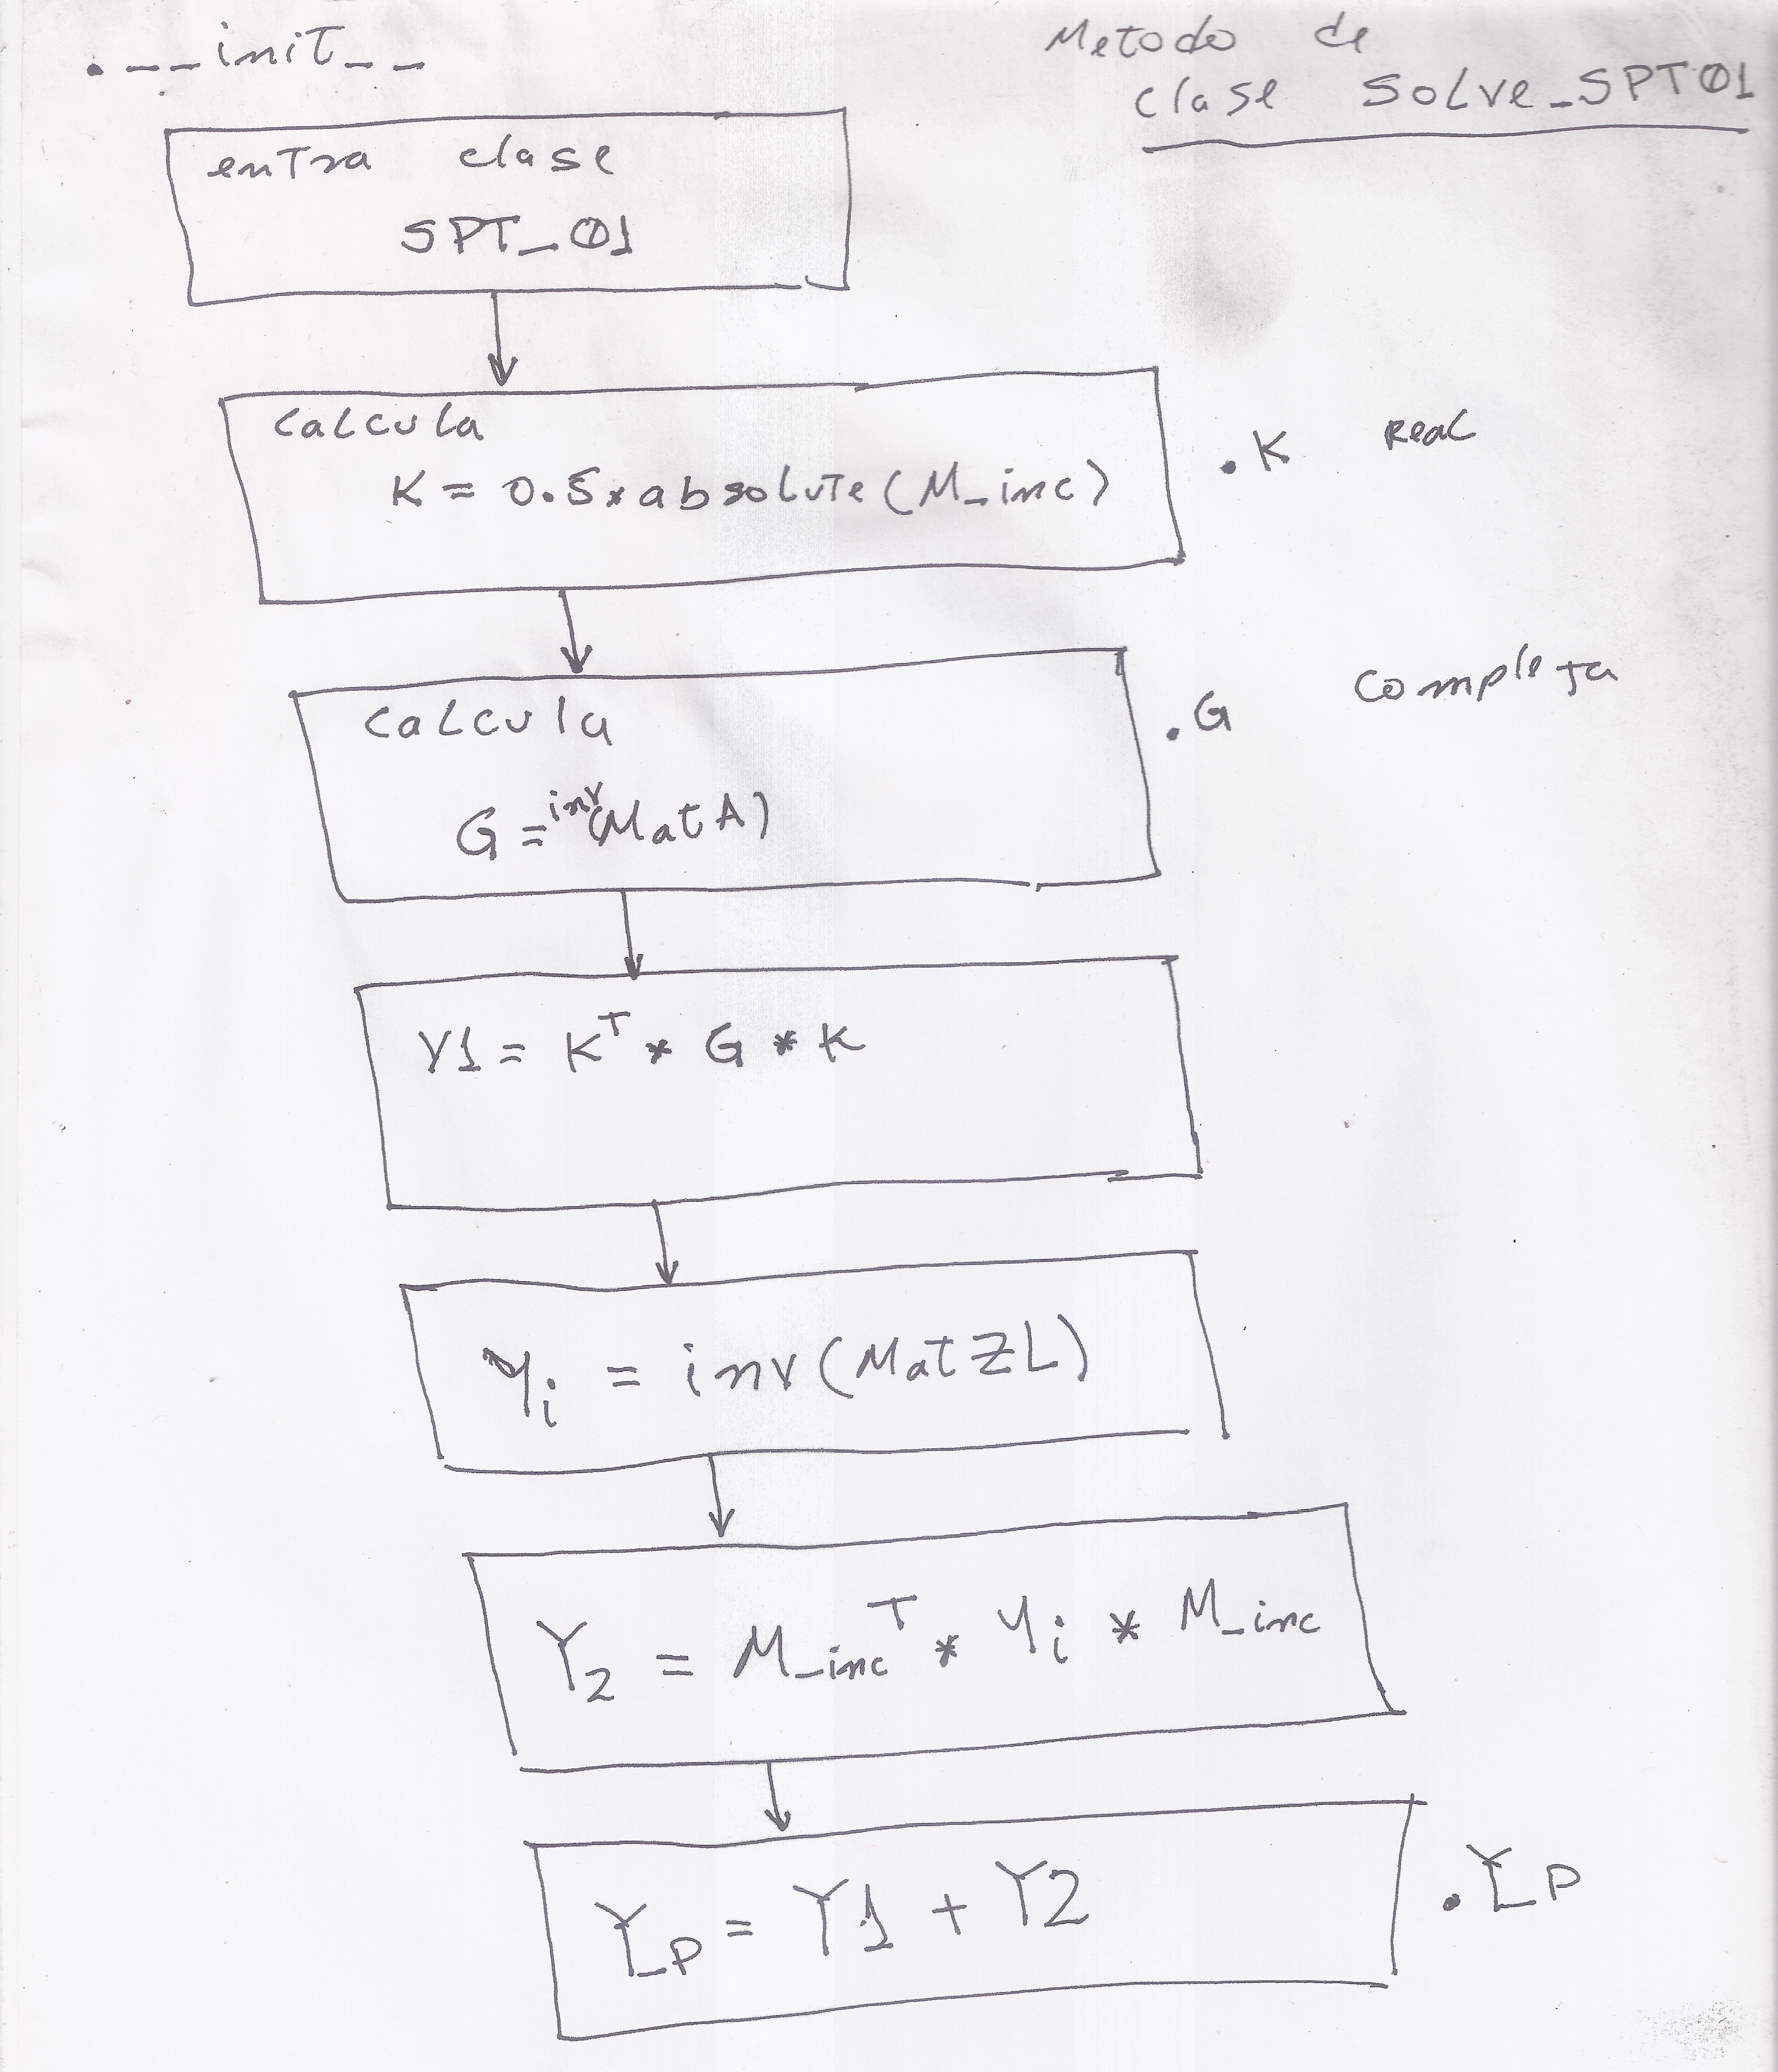 .__init__
Metodo de
clase Solve_SPT01
entra clase
SPT_01
Calcula
K = 0.5*absolute(M_inc)
.K Real
Calcula
G = inv(MatA)
.G Compleja
Y1 = K^T * G * K
Yi = inv(MatZL)
Y2 = M_inc^T * Yi * M_inc
Y_P = Y1 + Y2
.Y_P